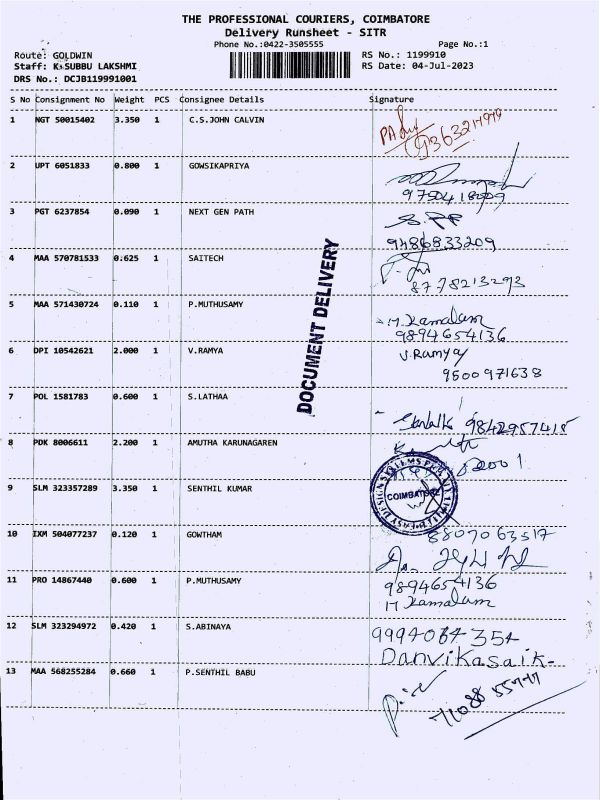 THE PROFESSIONAL COURIERS, COIMBATORE
Delivery Runsheet - SITR
Phone No.:0422-3505555 Page No.:1
Route: GOLDWIN RS No.: 1199910
Staff: K.SUBBU LAKSHMI RS Date: 04-Jul-2023
DRS No.: DCJB119991001
S No Consignment No Weight PCS Consignee Details Signature
1 NGT 50015402 3.350 1 C.S.JOHN CALVIN
2 UPT 6051833 0.800 1 GOWSIKAPRIYA
9750418009
3 PGT 6237854 0.090 1 NEXT GEN PATH
9486833209
4 MAA 570781533 0.625 1 SAITECH
8778213293
5 MAA 571430724 0.110 1 P.MUTHUSAMY
M.Kamalam
9894654136
6 DPI 10542621 2.000 1 V.RAMYA
V.Ramya
9500971638
DOCUMENT DELIVERY
7 POL 1581783 0.600 1 S.LATHAA
9842957415
8 PDK 8006611 2.200 1 AMUTHA KARUNAGAREN
9 SLM 323357289 3.350 1 SENTHIL KUMAR
COIMBATORE
8807063517
10 IXM 504077237 0.120 1 GOWTHAM
11 PRO 14867440 0.600 1 P.MUTHUSAMY
9894654136
M Kamalam
12 SLM 323294972 0.420 1 S.ABINAYA
Danvikasaik-
13 MAA 568255284 0.660 1 P.SENTHIL BABU